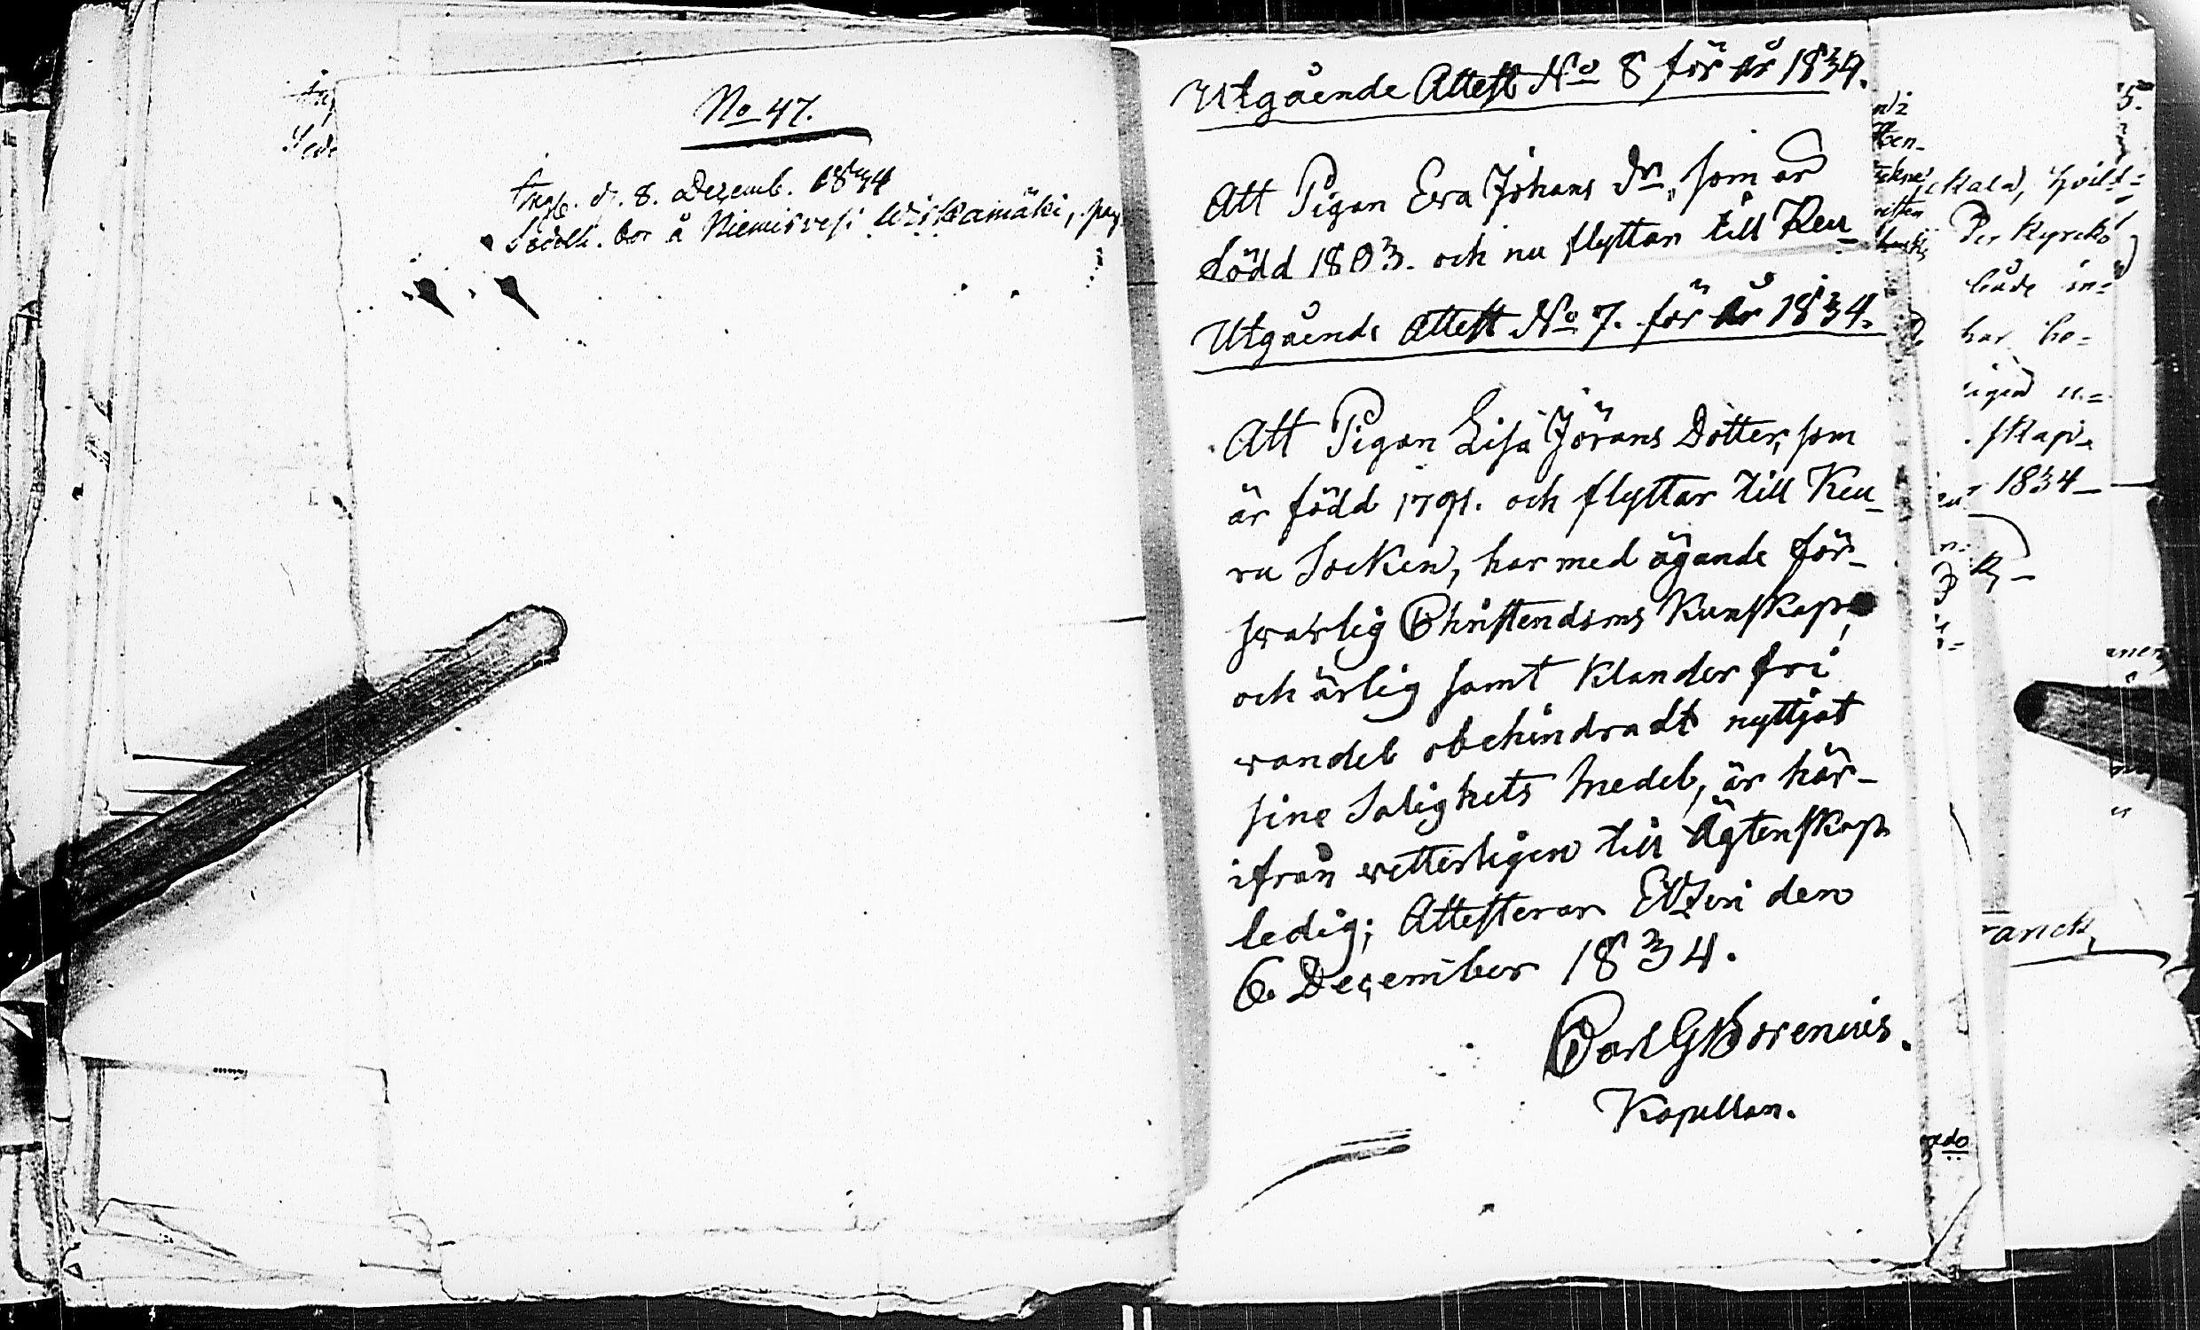 No 47.
Ingb. d. 8. Dezemb. 1834
bor å Niemisvesi Wiskamäki,
Utgående Attest No 8 för år 1834.
Att Pigan Eva Johans Dr, som är
född 1803. och nu flyttar till Keu_
Utgående Attest No 7. för år 1834.
Att Pigan Lisa Jörans Dotter, som
är född 1791. och flyttar till Keu_
ru Socken, har med ägande för_
svarlig Christendoms Kunskap,
och ärlig samt klander fri
vandel obehindradt nyttjat
sine Salighets medel, är här_
ifrån vetterligen till Ägtenskap
ledig; Attesterar Etzeri den
6 December 1834.
Carl G Borenius.
Kapellan.
5.
Per Kyrko
både in=
har be=
skap
1834_
ranck